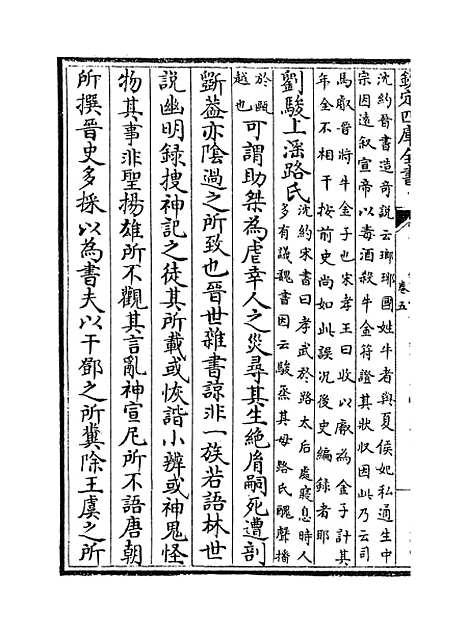 欽定四庫全書
卷五
沈約晉書造奇說云瑯琊國姓牛者與夏侯妃私通生中
宗因逺叙宣帝以毒酒殺牛金符證其狀收因此乃云司
馬叡晉將牛金子也宋孝王曰收以叡為金子計其
年全不相干按前史尚如此誤况後史編錄者耶
劉駿上滛路氏
沈約宋書曰孝武於路太后處寢息時人
多有議魏書因云駿烝其母路氏醜聲播
於甌
越也
可謂助桀為虐幸人之災尋其生絶胤嗣死遭剖
斵葢亦陰過之所致也晉世雜書諒非一族若語林世
說幽明録搜神記之徒其所載或恢諧小辨或神鬼怪
物其事非聖揚雄所不觀其言亂神宣尼所不語唐朝
所撰晉史多採以為書夫以干鄧之所糞除王虞之所